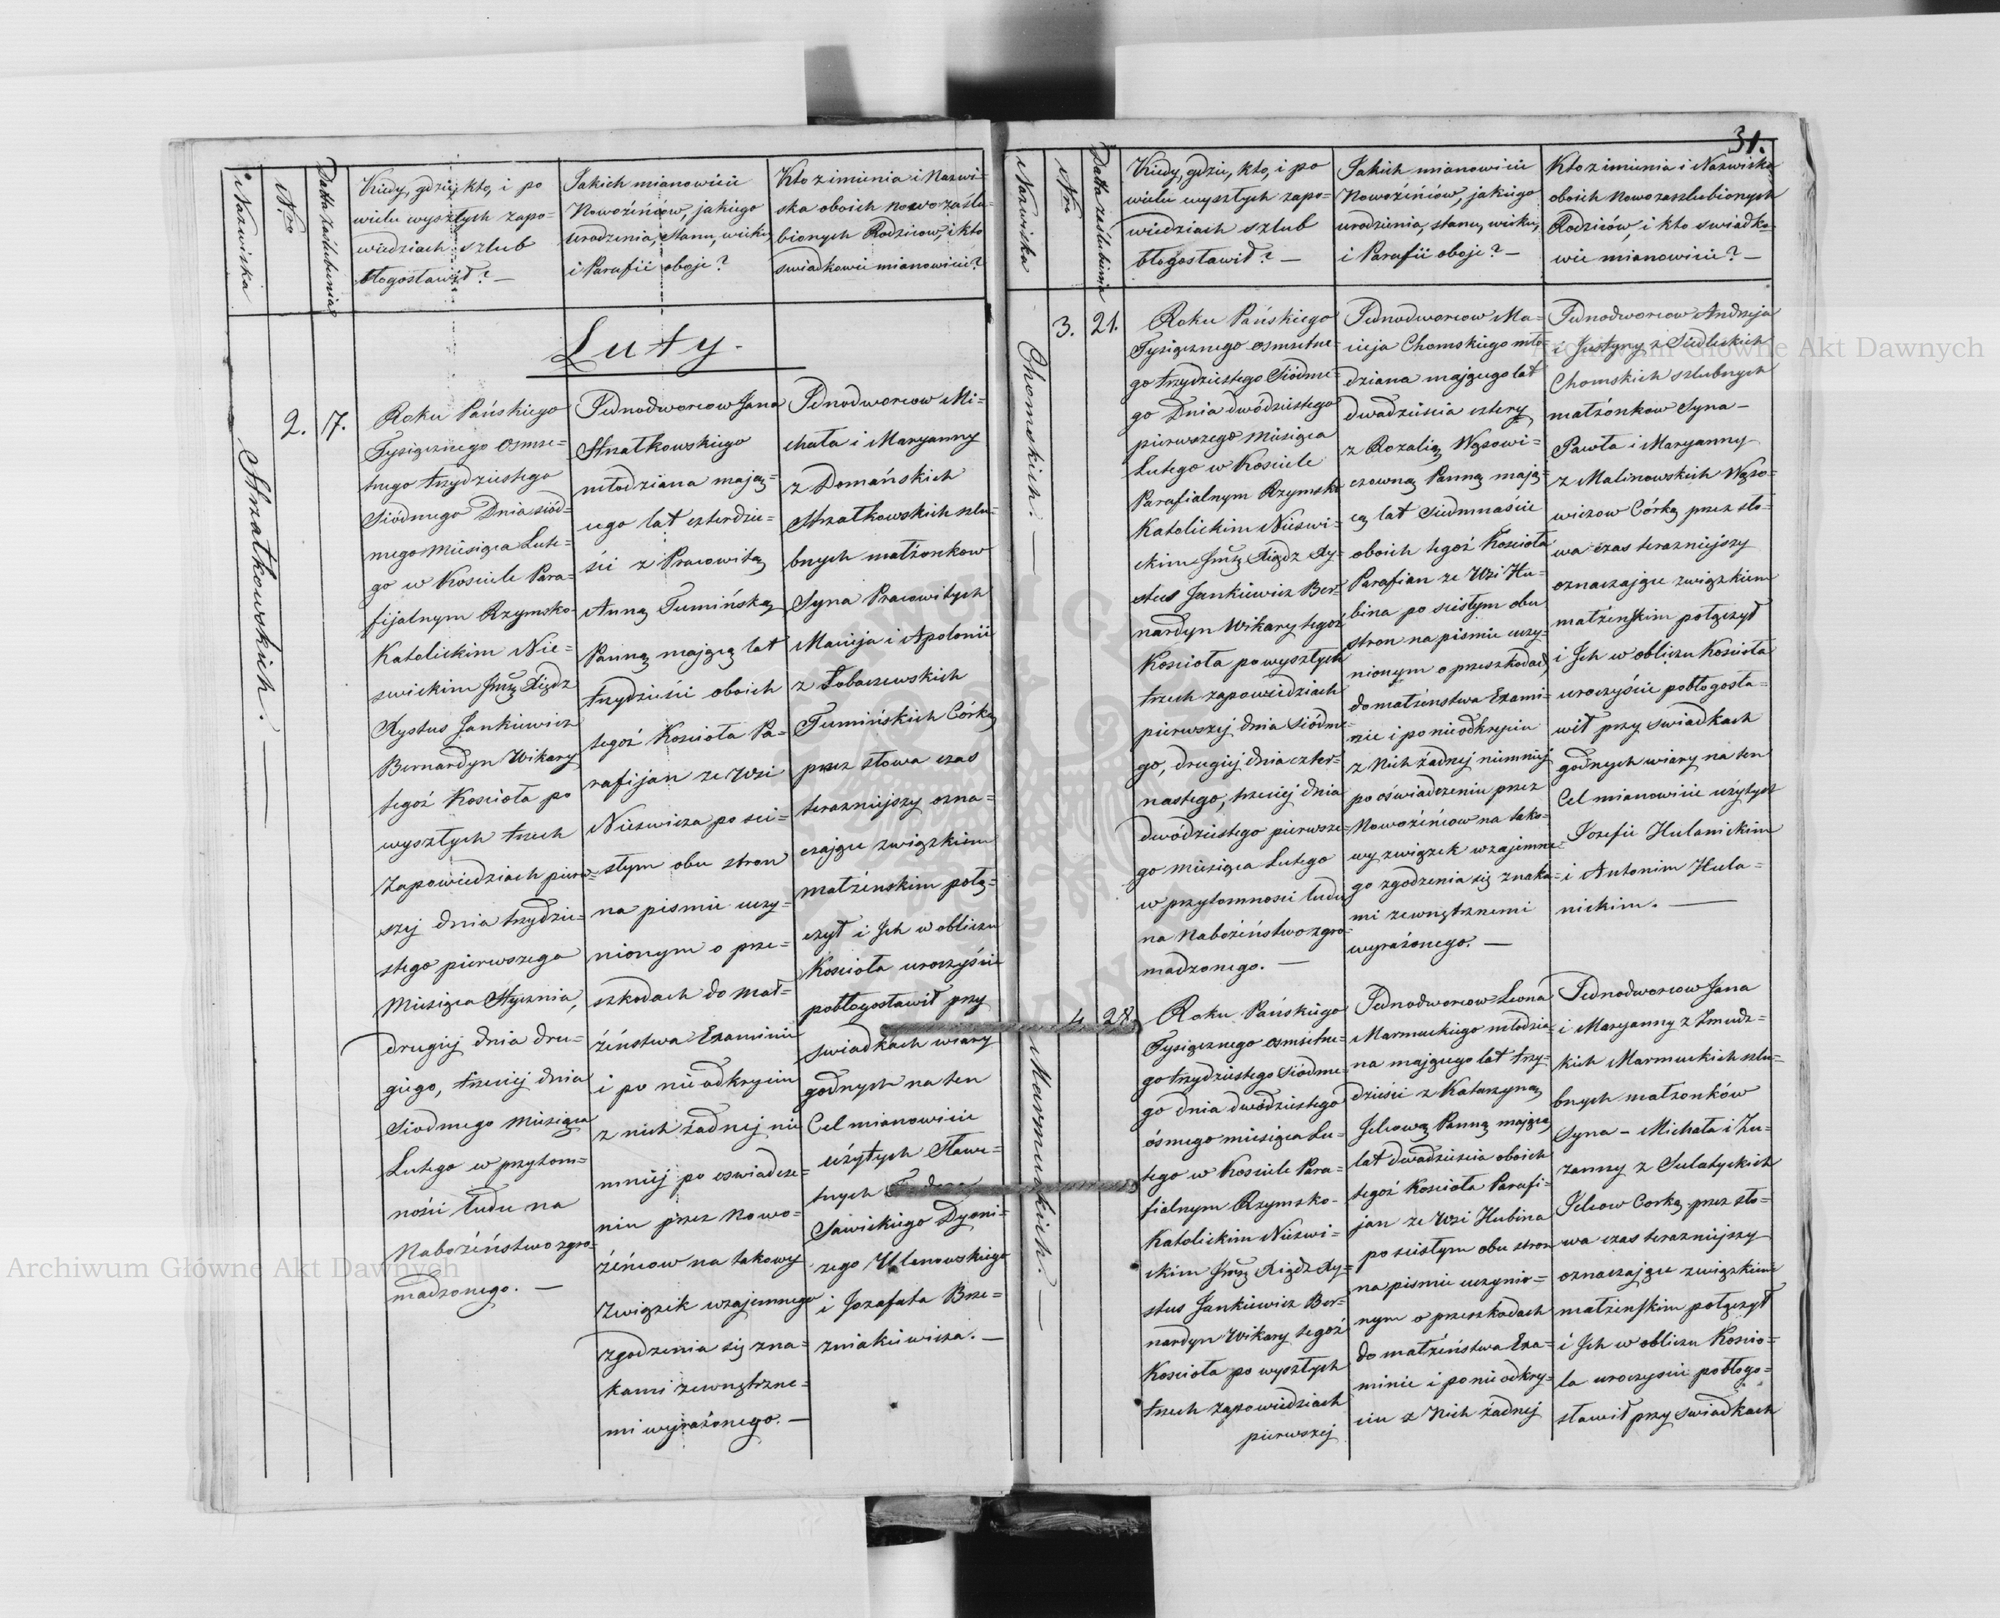 Nazwiska
Nro
Datta zaślubienia
Kiedy, gdzie, kto, i po
wielu wyszłych zapo-
wiedziach szlub
błogosławił? —
Jakich mianowicie
Nowożeńców, jakiego
urodzenia, stanu, wieku,
i Parafii oboje?
Kto z imienia i Nazwi-
ska oboich nowo zaślu-
bionych Rodziców, i kto
swiadkowie mianowicie?
Luty.
Strzałkowskich. —
2.
7.
Roku Pańskiego
Tysiącznego osmse-
tnego trzydziestego
Siódmego Dnia siód-
mego miesiąca Lute-
go w Kosciele Para-
fijalnym Rzymsko-
Katolickim Nie-
swickim Jmść Xiądz
Rystus Jankiewicz
Bernardyn Wikary
tegoż Kościoła po
wyszłych trzech
Zapowiedziach pierw-
szej dnia trzydzie-
stego pierwszego
Miesiąca Stycznia,
drugiej dnia dru-
giego, trzeciej dnia
Siodmego Miesiąca
Lutego w przytom-
ności ludu na
Nabożeństwo zgro-
madzonego. —
Jednodworcow Jana
Strzałkowskiego
młodziana mają-
cego lat czterdzie-
ści z Pracowitą
Anną Tumińską
Panną mającą lat
trzydzieści oboich
tegoż Kościoła Pa-
rafijan ze Wsi
Nieswieza po sci-
słym obu stron
na pismie uczy-
nionym o prze-
szkodach do mał-
żeństwa Examinie
i po nieodkryciu
z nich żadnej nie
mniej po oswiadcze-
niu przez Nowo-
żeńcow na takowy
Związek wzajemnego
zgodzenia się zna-
kami zewnętrzne-
mi wyrażonego. —
Jednodworcow Mi-
chała i Maryanny
z Domańskich
Strzałkowskich szlu-
bnych małżonkow
Syna Pracowitych
Macieja i Apolonii
z Łobaczewskich
Tumińskich Córkę
przez słowa czas
terazniejszy ozna-
czające związkiem
małżenskim połą-
czył i Ich w obliczu
Kościoła uroczyście
pobłogosławił przy
swiadkach wiary
godnych na ten
Cel mianowicie
użytych Sławe-
tnych
Sawickiego Dyoni-
zego Ulanowskiego
i Jozafata Brze-
zniakiewicza. —
31.
Nazwiska
Nro
Datta zaślubienia
Kiedy, gdzie, kto, i po
wielu wyszłych zapo-
wiedziach szlub
błogosławił? —
Jakich mianowicie
Nowożeńców, jakiego
urodzenia, stanu, wieku,
i Parafii oboje? —
Kto z imienia i Nazwiska
oboich Nowozaszlubionych
Rodziców, i kto swiadko-
wie mianowicie? —
Chomskich. —
3.
21.
Roku Pańskiego
Tysiącznego osmsetne-
go trzydziestego Siódme-
go Dnia dwódziestego
pierwszego miesiąca
Lutego w Kosciele
Parafialnym Rzymsko
Katolickim Nieswi-
ckim Jmść Xiądz Ry-
stus Jankiewicz Ber-
nardyn Wikary tegoż
Kościoła po wyszłych
trzech zapowiedziach
pierwszej dnia Siódme-
go, drugiej dnia czter-
nastego, trzeciej dnia
dwódziestego pierwsze-
go miesiąca Lutego
w przytomnosci ludu
na Nabożeństwo zgro-
madzonego. —
Jednodworcow Ma-
cieja Chomskiego mło-
dziana mającego lat
dwadzieścia cztery
z Rozalią Wąsowi-
czowną Panną mają-
cą lat Siedmnaście
oboich tegoż Kościoła
Parafian ze Wsi Hu-
bina po scisłym obu
stron na pismie uczy-
nionym o przeszkodach
do małżenstwa Exami-
nie i po nieodkryciu
z Nich żadnej niemniej
po oświadczeniu przez
Nowożeńcow na tako-
wy związek wzajemne-
go zgodzenia się znaka-
mi zewnętrznemi
wyrażonego. —
Jednodworcow Andrzeja
i Justyny z Siedleckich
Chomskich szlubnych
małżonkow Syna —
Pawła i Maryanny
z Malinowskich Wąso-
wiczow Córkę przez sło-
wa czas terazniejszy
oznaczające związkiem
małżenskim połączył
i Ich w obliczu Kościoła
uroczyście pobłogosła-
wił przy swiadkach
godnych wiary na ten
Cel mianowicie użytych
Jozefie Hulanickim
i Antonim Hula-
nickim. —
Marmuckich. —
4.
28.
Roku Pańskiego
Tysiącznego osmsetne-
go trzydziestego Siodme-
go dnia dwódziestego
ósmego miesiąca Lu-
tego w Kościele Para-
fialnym Rzymsko-
Katolickim Nieswi-
ckim Jmść Xiądz Ry-
stus Jankiewicz Ber-
nardyn Wikary tegoż
Kościoła po wyszłych
trzech zapowiedziach
pierwszej
Jednodworcow Leona
Marmuckiego młodzia-
na mającego lat trzy-
dzieści z Katarzyną
Jelcową Panną mającą
lat dwadzieścia oboich
tegoż Kościoła Parafi-
jan ze Wsi Hubina
po scisłym obu stron
na pismie uczynio-
nym o przeszkodach
do małżeństwa Exa-
minie i po nieodkry-
ciu z Nich żadnej
Jednodworcow Jana
i Maryanny z Zmudz-
kich Marmuckich szlu-
bnych małżonków
Syna — Michała i Zu-
zanny z Sulatyckich
Jelcow Corkę przez sło-
wa czas terazniejszy
oznaczające związkiem
małżenskim połączył
i Ich w obliczu Koscio-
ła uroczyscie pobłogo-
sławił przy swiadkach
Archiwum Główne Akt Dawnych
Archiwum Główne Akt Dawnych